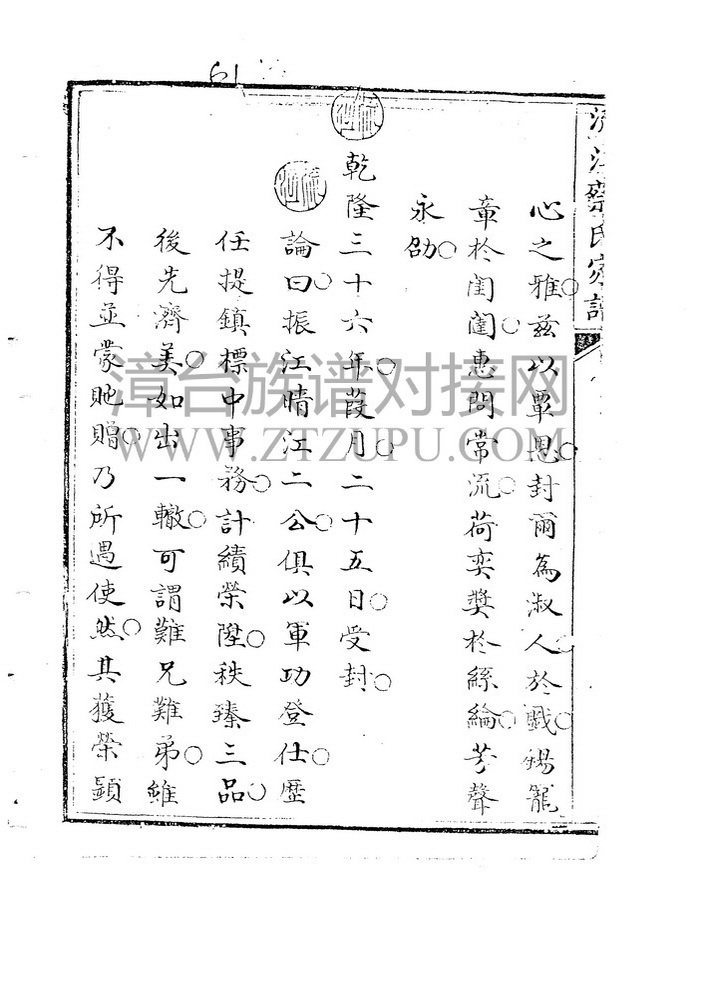 61
江蔡氏家譜
心之雅○茲以覃恩○封爾為淑人○於戲○錫寵
章於閨閫○惠問常流○荷奕獎於絲綸○芳聲
永劭○
乾隆三十六年○葭月○二十五日○受封○
論曰○振江晴江二公○俱以軍功登仕○歷
任提鎮標中事務○計績榮陞○秩臻三品○
後先濟美○如出一轍○可謂難兄難弟○雖
不得並蒙貤贈○乃所遇使然○其獲榮顯
漳台族谱对接网
WWW.ZTZUPU.COM